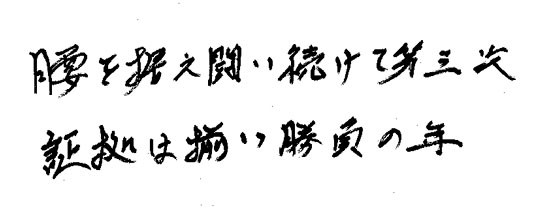 腰を据え闘い続けて第三次
証拠は揃い勝負の年